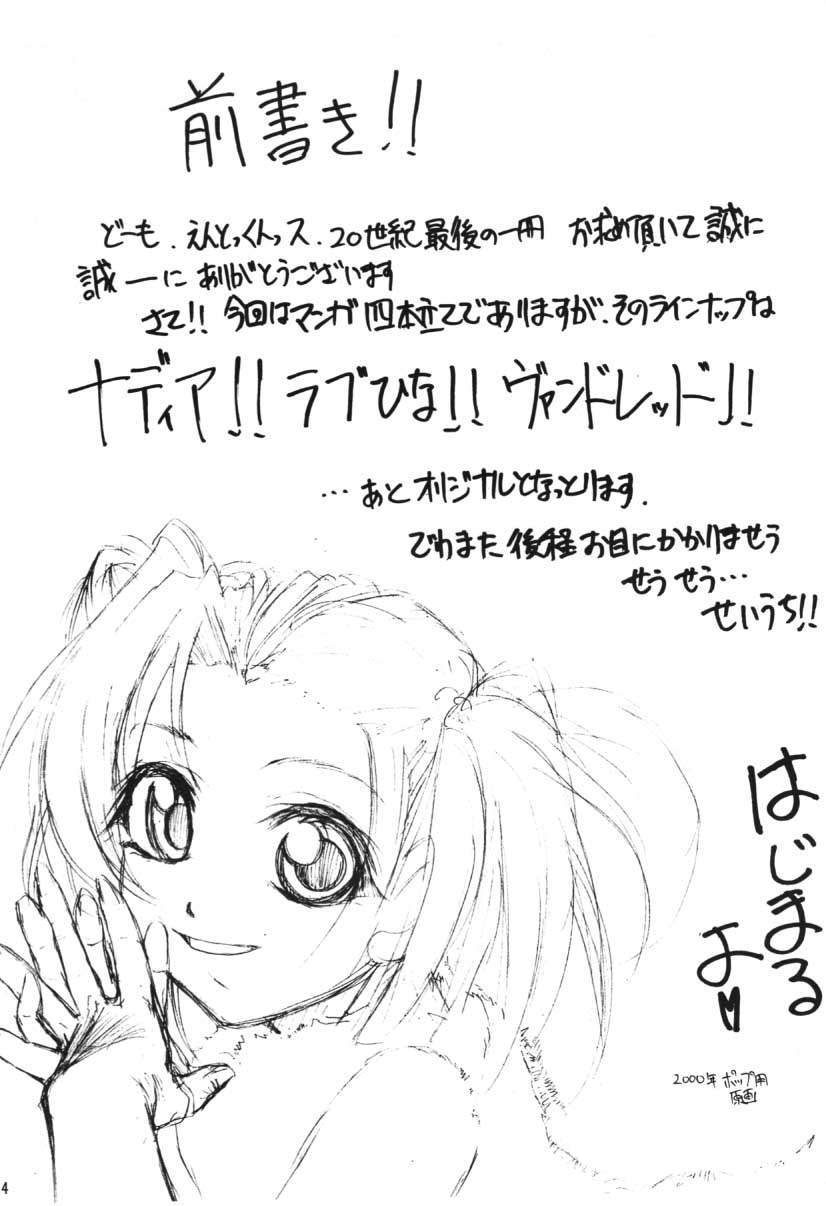 前書き!!
どーも、えんとっくんっス、20世紀最後の一冊 お求め頂いて誠に
誠ーに ありがとうございます
さて!! 今回はマンガ四本立てでありますが、そのラインナップは
ナディア!! ラブひな!! ヴァンドレッド!!
…あとオリジナルとなっとります、
でわまた後程お目にかかりませう
せうせう…
せいうち!!
はじまる
よ♥
2000年 ポップ用
原画
4